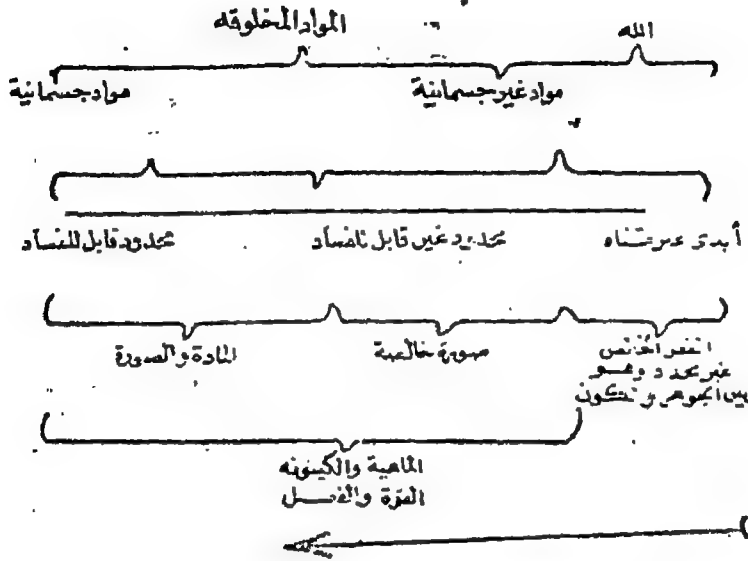 الله
المواد المخلوقه
مواد غير جسمانية
مواد جسمانية
أبدى غير متناه
محدود غير قابل للفساد
محدود قابل للفساد
الفعل الخالص
غير محدد وهو
بين الجوهر و
صورة خالصة
المادة والصورة
الماهية والكينونه
القوة والفعل